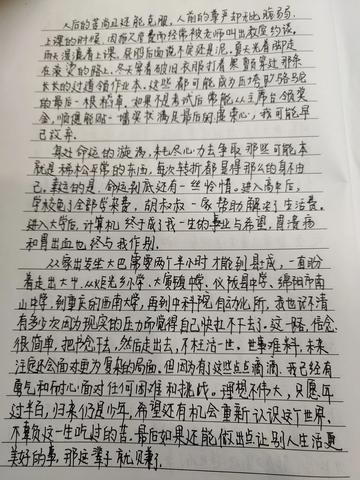 人后的苦尚且还能克服，人前的尊严却无比脆弱。
上课的时候，因拖欠学费而经常被老师叫出教室约谈。
雨天湿漉着上课，屁股后面说不定还是泥。夏天光着脚走
在滚烫的路上。冬天穿着破旧衣服打着寒颤穿过那条
长长的过道领作业本。这些都可能成为压垮骆驼
的最后一根稻草。如果不是考试后常能从主席台领奖
金，顺便能贴一墙奖状满足最后的虚荣心，我可能早
已放弃。
身处命运的漩涡，耗尽心力去争取那些可能本
就是稀松平常的东西，每次转折都显得那么的身不由
己。幸运的是，命运到底还有一丝怜惜。进入高中后，
学校免了全部学杂费，胡叔叔一家帮助解决了生活费。
进入大学后，计算机终于成了我一生的事业与希望，胃溃疡
和胃出血也终与我作别。
从家出发坐大巴需要两个半小时才能到县城，一直盼
着走出大山。从炬光乡小学、大寅镇中学、仪陇县中学、绵阳市南
山中学，到重庆的西南大学，再到中科院自动化所，我也记不清
有多少次因为现实的压力而觉得自己快扛不下去了。这一路，信念
很简单，把书念下去，然后走出去，不枉活一世。世事难料，未来
注定还会面对更为复杂的局面。但因为有了这些点点滴滴，我已经有
勇气和耐心面对任何困难和挑战。理想不伟大，只愿年
过半百，归来仍是少年，希望还有机会重新认识这个世界，
不辜负这一生吃过的苦。最后如果还能做出点让别人生活更
美好的事，那这辈子就赚了。